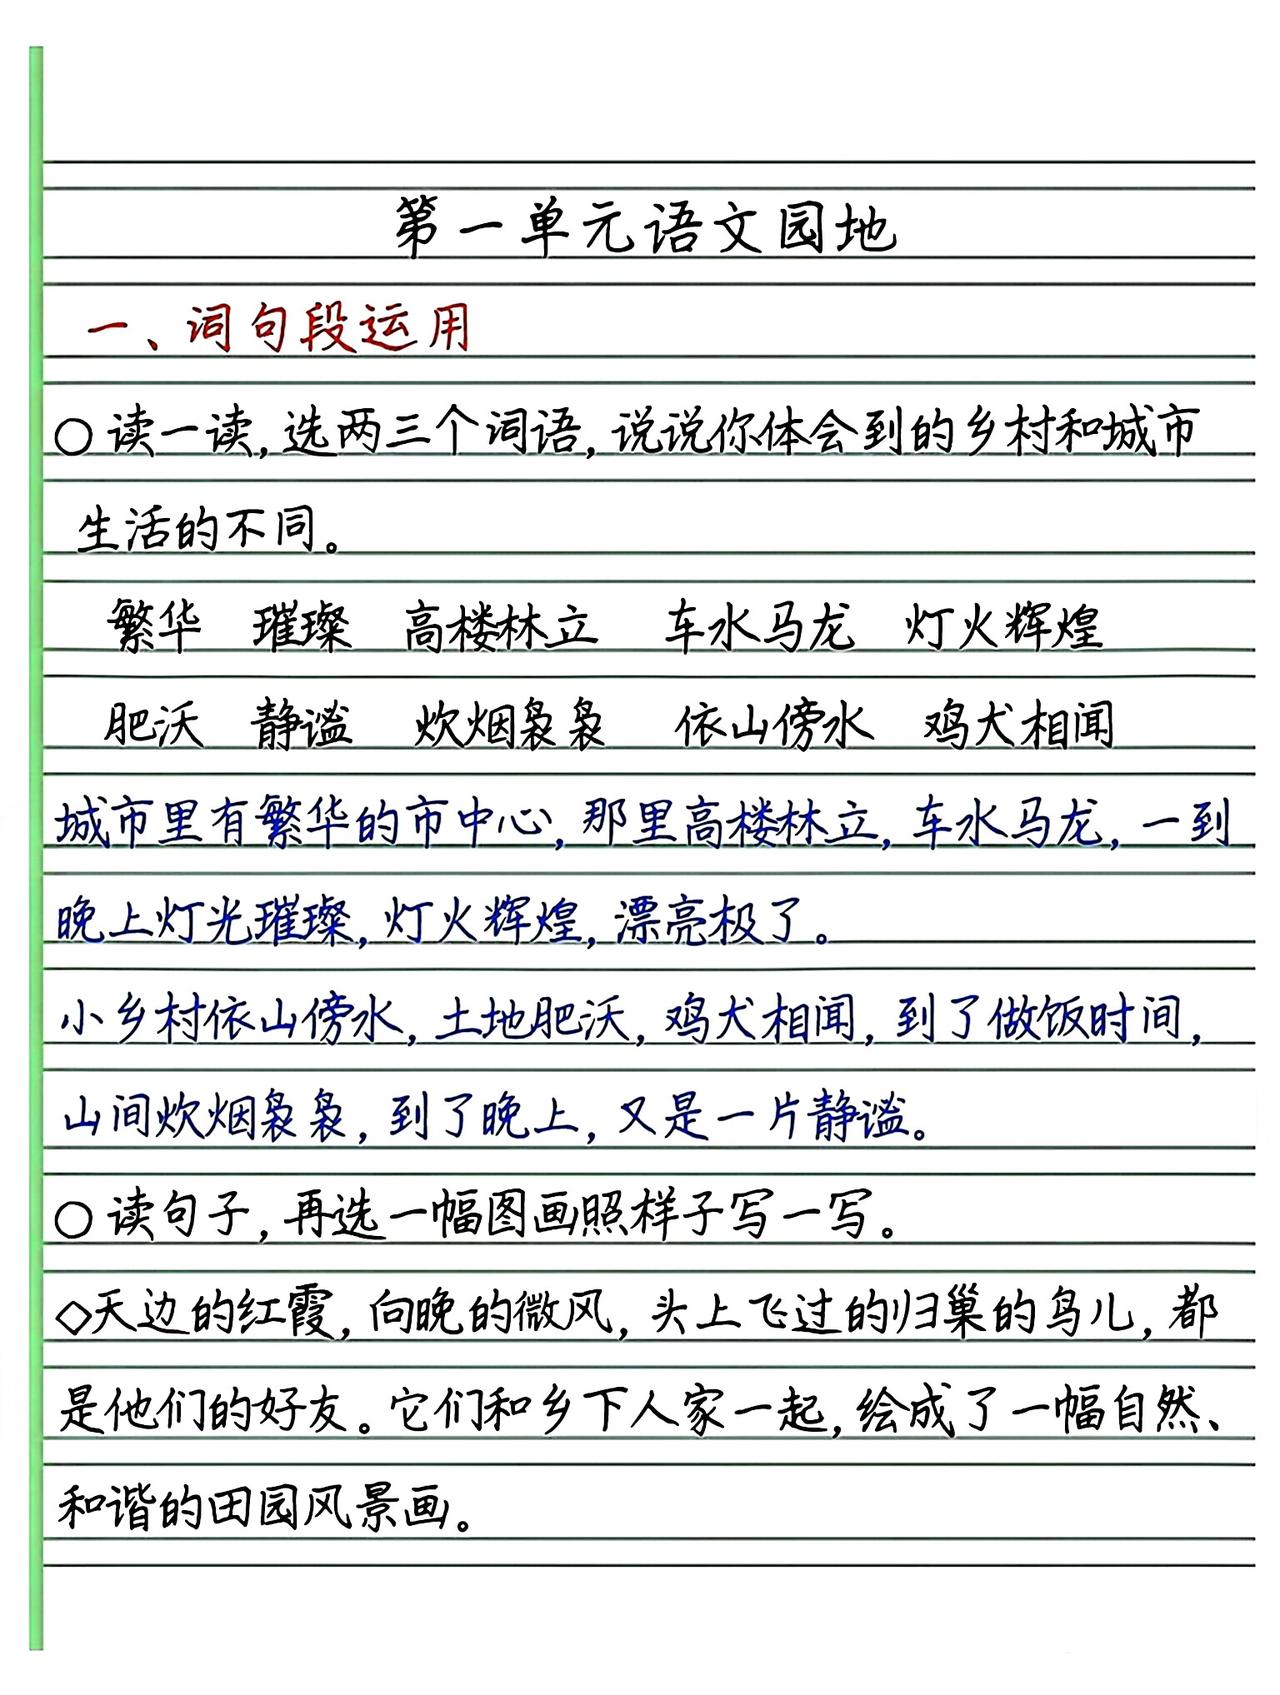 第一单元语文园地
一、词句段运用
○读一读,选两三个词语,说说你体会到的乡村和城市
生活的不同。
繁华 璀璨 高楼林立 车水马龙 灯火辉煌
肥沃 静谧 炊烟袅袅 依山傍水 鸡犬相闻
城市里有繁华的市中心,那里高楼林立,车水马龙,一到
晚上灯光璀璨,灯火辉煌,漂亮极了。
小乡村依山傍水,土地肥沃,鸡犬相闻,到了做饭时间,
山间炊烟袅袅,到了晚上,又是一片静谧。
○读句子,再选一幅图画照样子写一写。
◇天边的红霞,向晚的微风,头上飞过的归巢的鸟儿,都
是他们的好友。它们和乡下人家一起,绘成了一幅自然、
和谐的田园风景画。